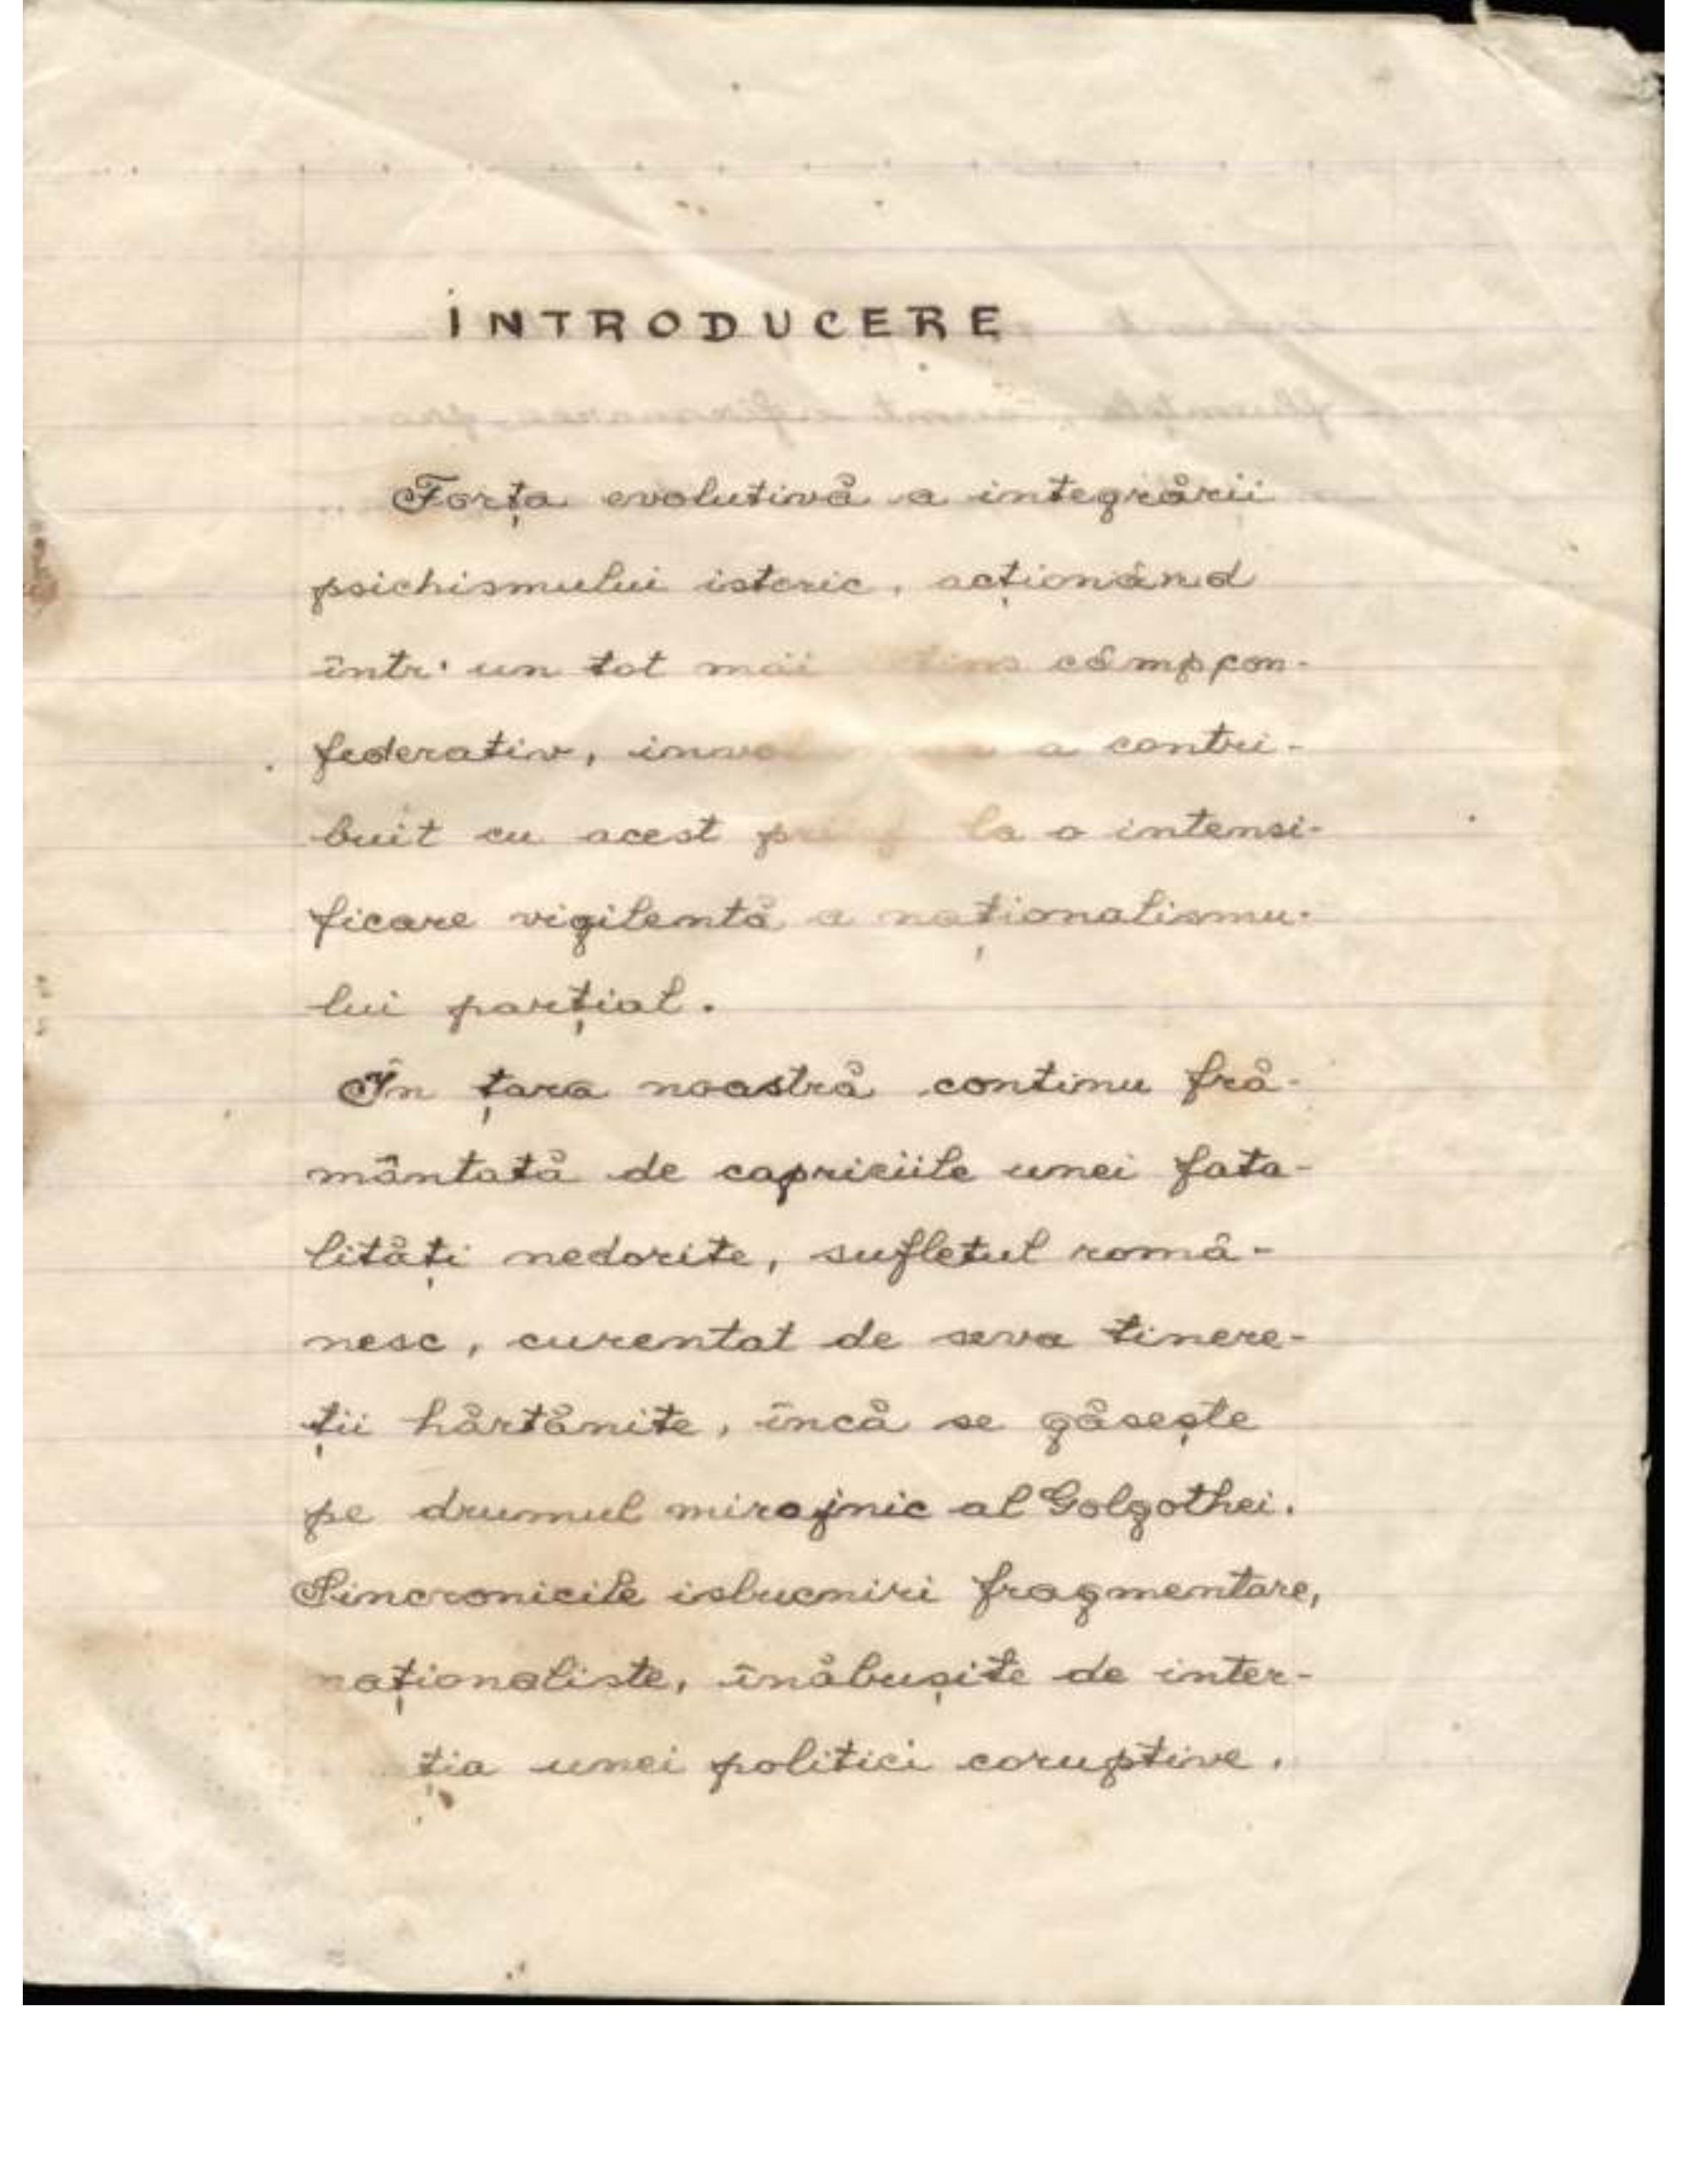 INTRODUCERE
Forța evolutivă a integrării
psichismului istoric, acționând
într'un tot mai câmp con-
federativ, a contri-
buit cu acest la o intensi-
ficare vigilentă a naționalismu-
lui parțial.
În țara noastră continu fră-
mântată de capriciile unei fata-
lități nedorite, sufletul româ-
nesc, curentat de seva tinere-
ții hărtănite, încă se găsește
pe drumul mirajnic al Golgothei.
Sincronicile isbucniri fragmentare,
naționaliste, înăbușite de iner-
ția unei politici coruptive.